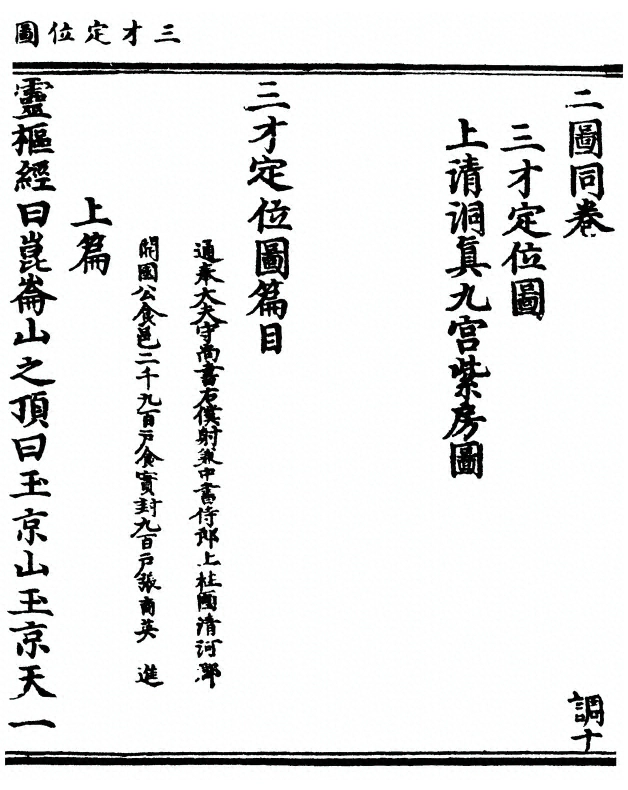 三才定位圖
二圖同卷
調十
三才定位圖
上清洞真九宮紫房圖
三才定位圖篇目
通奉大夫守尚書右僕射兼中書侍郎上柱國清河郡
開國公食邑二千九百戶食實封九百戶張商英 進
上篇
靈樞經曰崑崙山之頂曰玉京山玉京天一